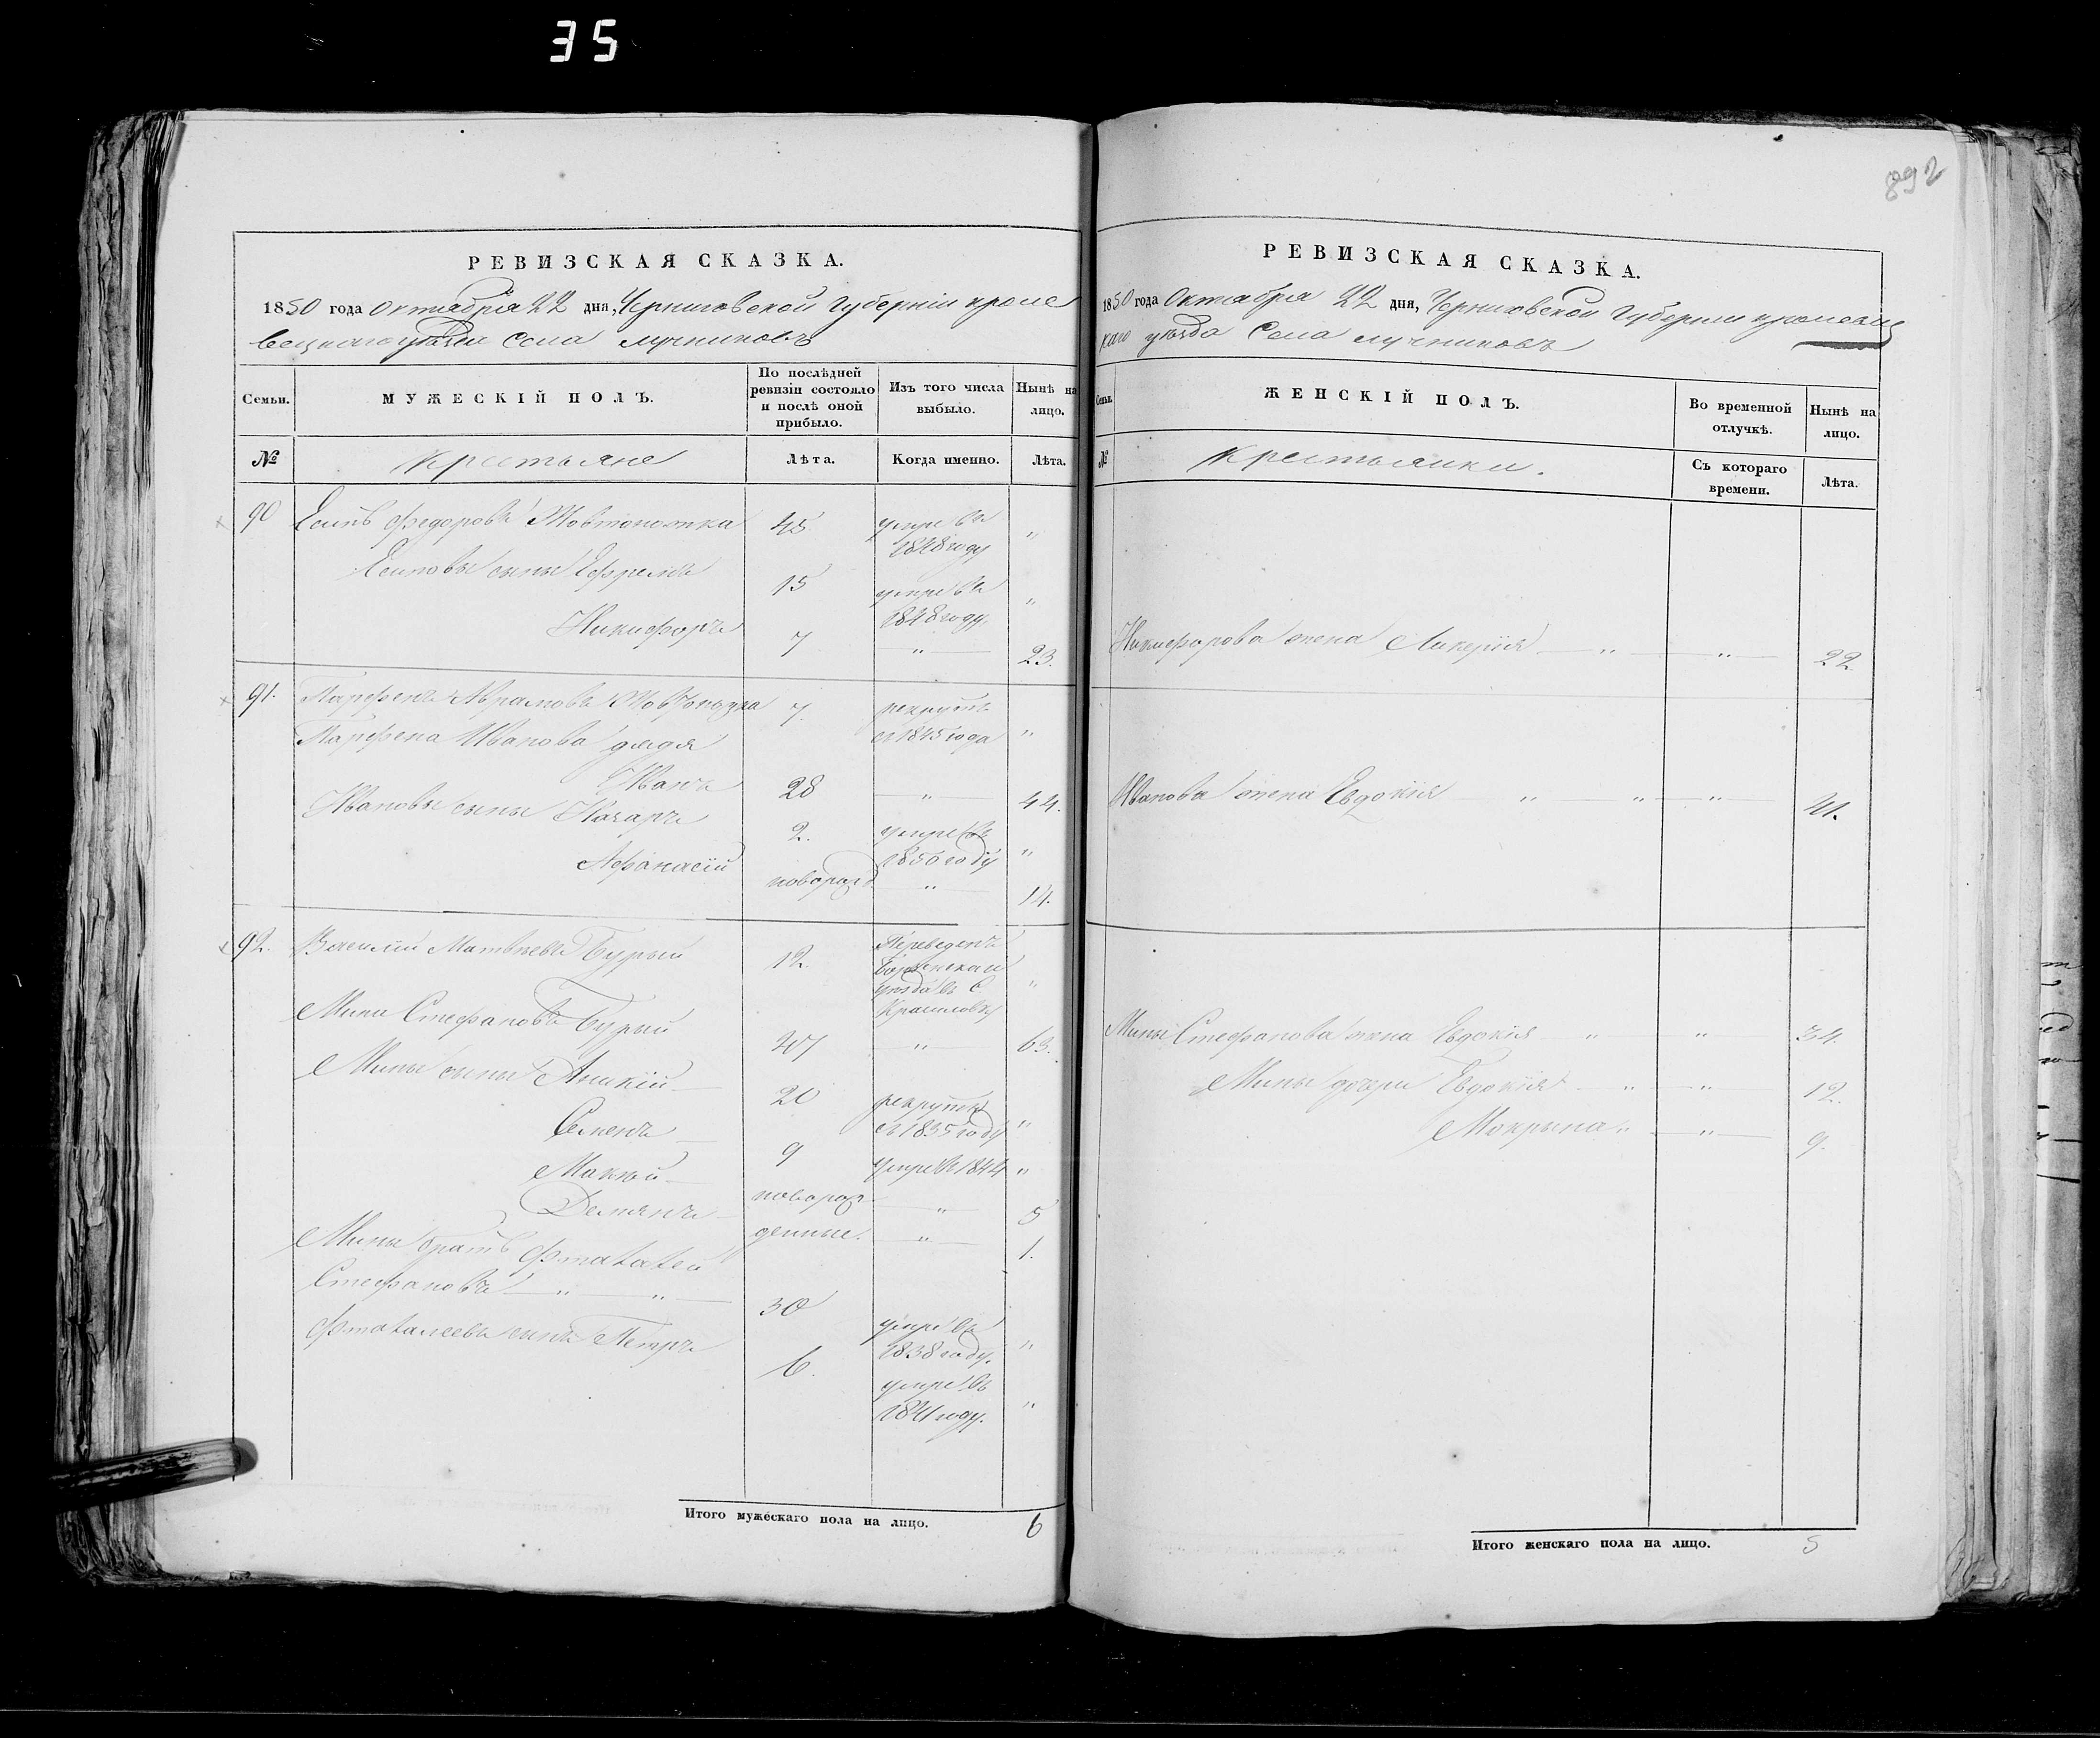 35
892
РЕВИЗСКАЯ СКАЗКА.
1850 года Октября 22 дня, Черниговской Губерніи кроле
вецкаго уѣзда Села лучниковъ
Семьи.
МУЖЕСКІЙ ПОЛЪ.
По послѣдней ревизіи состояло и послѣ оной прибыло.
Изъ того числа выбыло.
Нынѣ на лицо.
№
Крестьяне
Лѣта.
Когда именно.
Лѣта.
90 Есипъ Федоровъ 45 умре въ 1848 году "
Есиповы сыны Ефремъ 15 умре въ 1848 году. "
Никифоръ 7 " 23.
91. Парфенъ Абрамовъ 7. рекрутъ съ 1845 года "
Парфена Иванова дядя
Иванъ 28 " 44.
Ивановы сыны Назаръ 2. умре въ 1850 году "
Афанасій новорож " 14.
92. Василій Матвѣевъ Бурый 12. Переведенъ уѣзда въ С. "
Мина Стефановъ Бурый 47 " 63.
Мины сыны Аникій 20 рекрутъ съ 1835 году "
Семенъ 9 умре въ 1844 "
Мокѣй новорож " 5
Демянъ денные. " 1.
Мины братъ
Стефановъ " " 30 умре въ 1838 году. "
сынъ Петръ 6. умре въ 1841 году. "
Итого мужескаго пола на лицо. 6
РЕВИЗСКАЯ СКАЗКА.
1850 года Октября 22 дня, Черниговской Губерніи кролевец
каго уѣзда Села лучниковъ
Семьи.
ЖЕНСКІЙ ПОЛЪ.
Во временной отлучкѣ.
Нынѣ на лицо.
№
Крестьянки.
Съ котораго времени.
Лѣта.
Никифорова жена Ликерія " " 22.
Иванова жена Евдокія " " " 41.
Мины Стефанова жена Евдокія " " 34.
Мины дочери Евдокія " " 12.
Мокрына " " 9.
Итого женскаго пола на лицо. 5